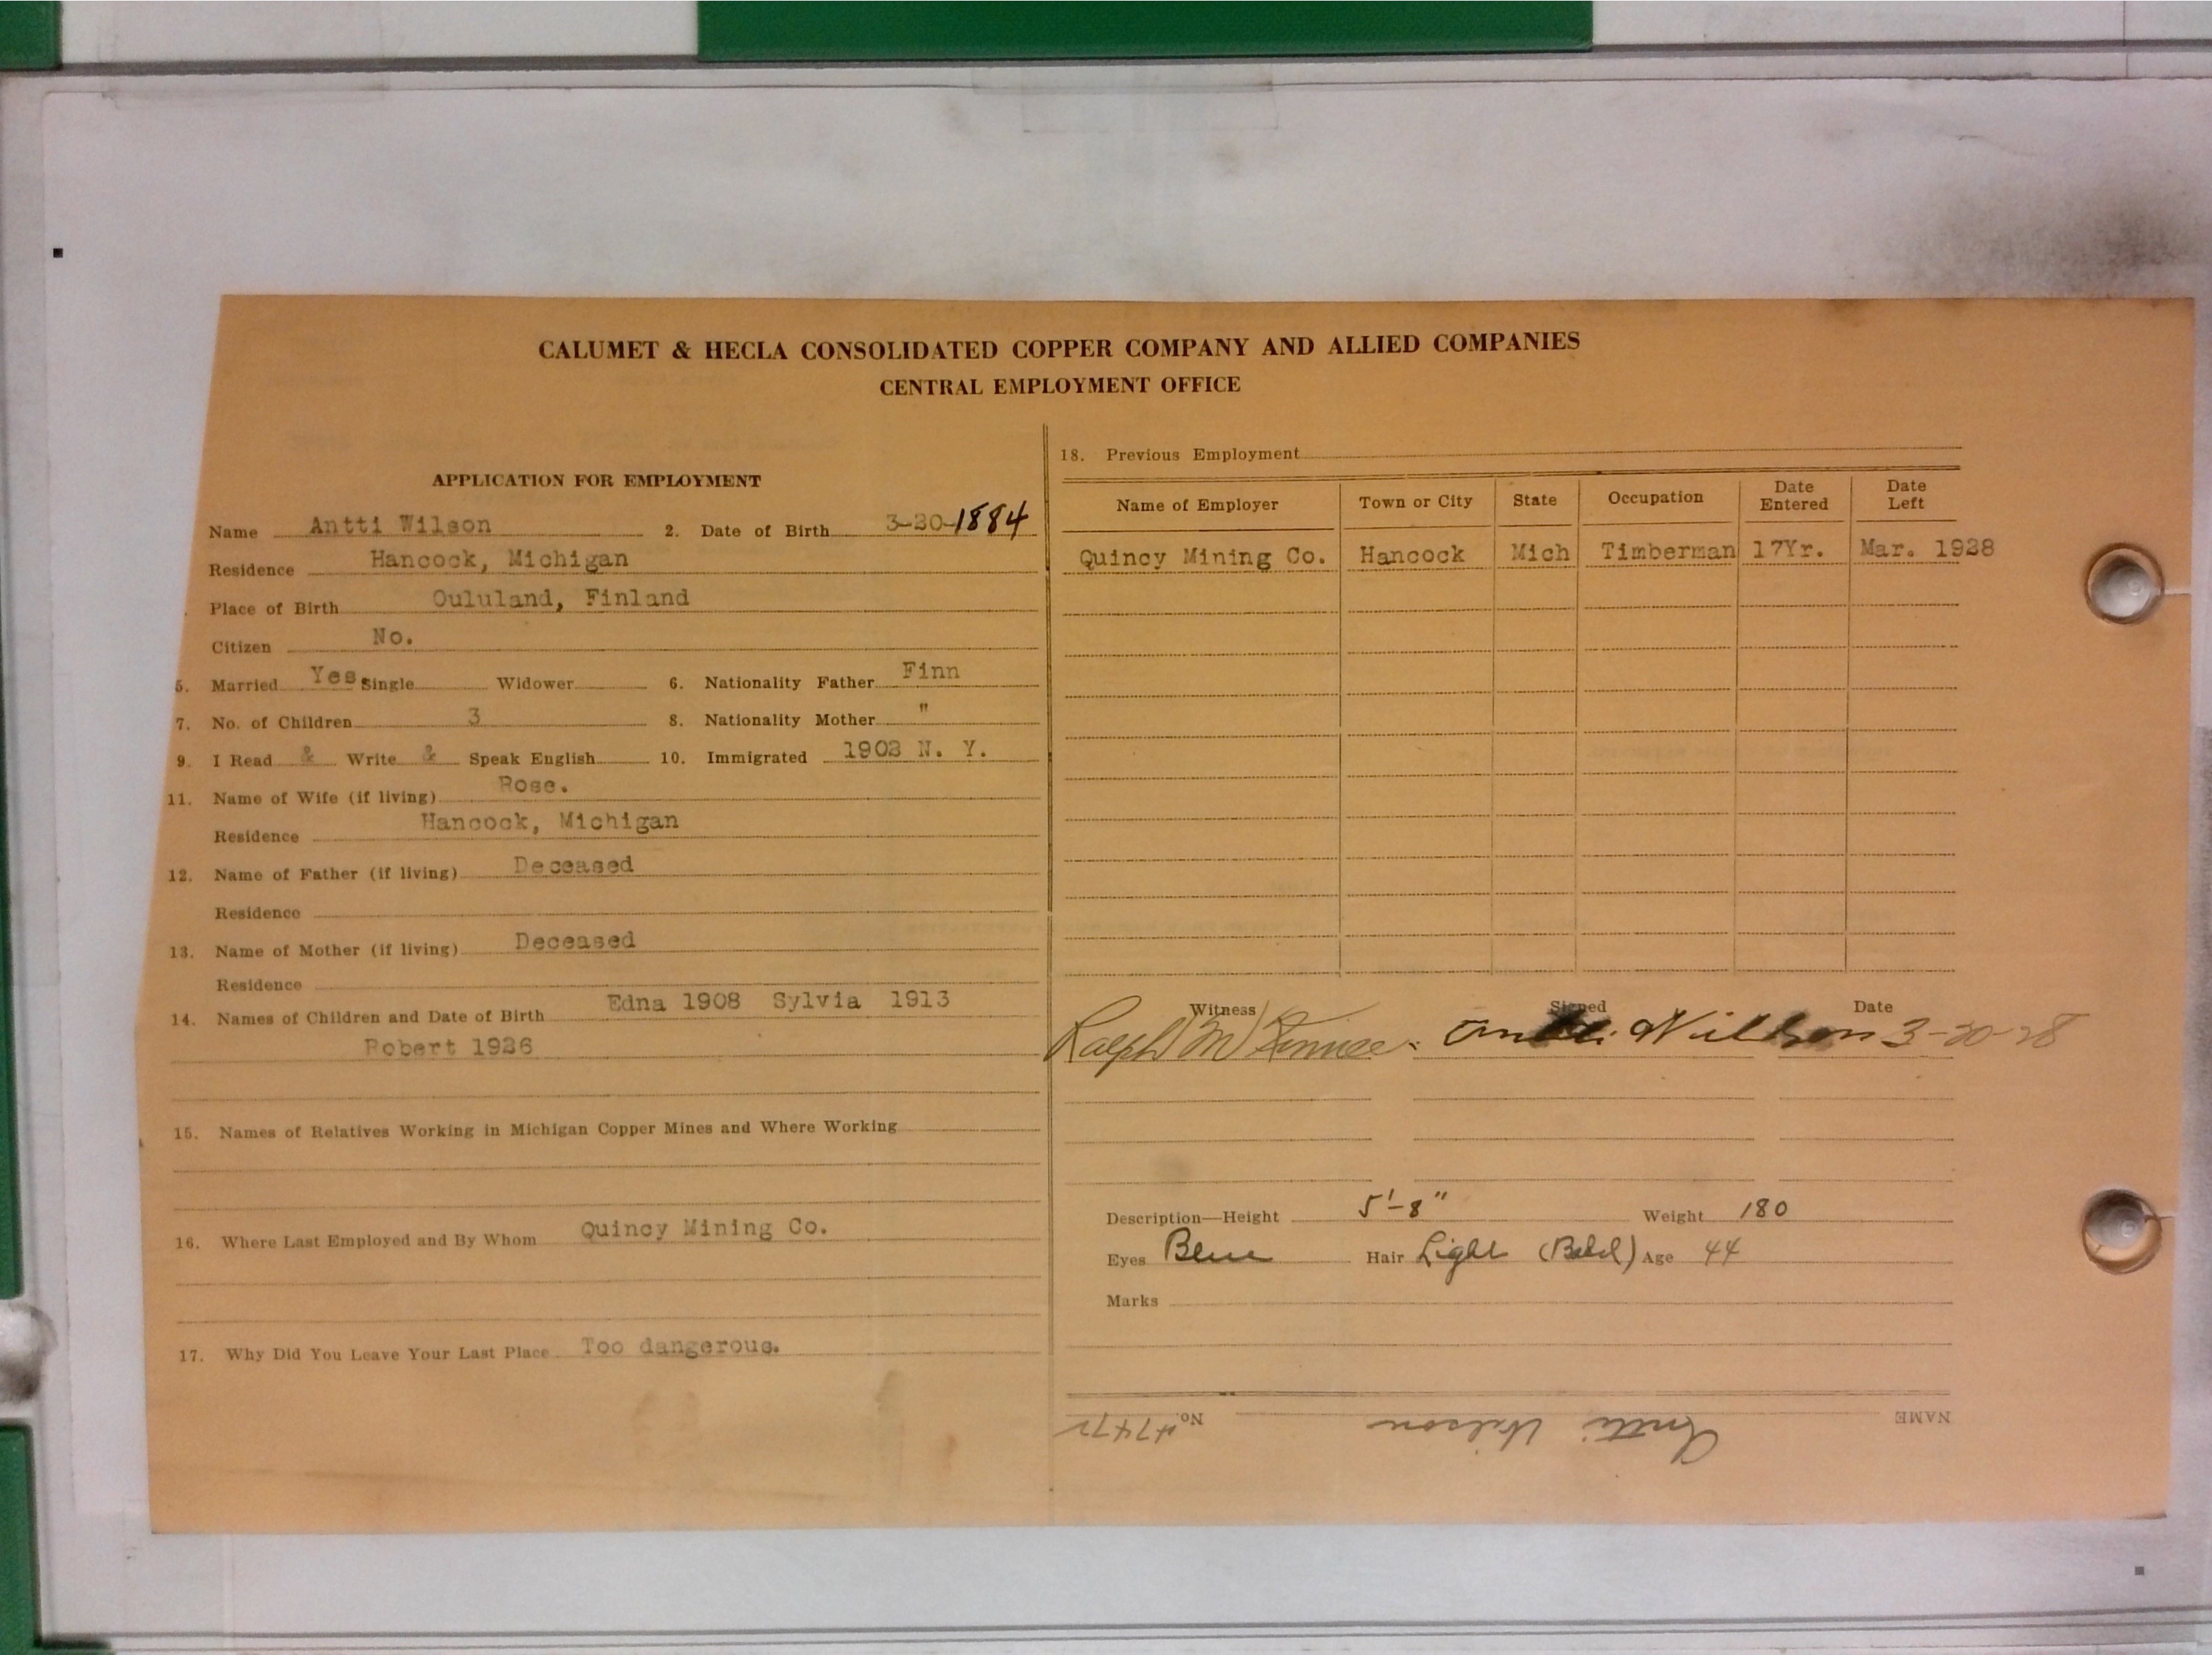 CALUMET & HECLA CONSOLIDATED COPPER COMPANY AND ALLIED COMPANIES
CENTRAL EMPLOYMENT OFFICE
APPLICATION FOR EMPLOYMENT
Name Antti Wilson 2. Date of Birth 3-20-1884
Residence Hancock, Michigan
Place of Birth Oululand, Finland
Citizen No.
5. Married Yes. Single Widower 6. Nationality Father Finn
7. No. of Children 3 8. Nationality Mother "
9. I Read & Write & Speak English 10. Immigrated 1902 N. Y.
11. Name of Wife (if living) Rose.
Residence Hancock, Michigan
12. Name of Father (if living) Deceased
Residence
13. Name of Mother (if living) Deceased
Residence
14. Names of Children and Date of Birth Edna 1908 Sylvia 1913
Robert 1926
15. Names of Relatives Working in Michigan Copper Mines and Where Working
16. Where Last Employed and By Whom Quincy Mining Co.
17. Why Did You Leave Your Last Place Too dangerous.
18. Previous Employment
Name of Employer Town or City State Occupation Date Entered Date Left
Quincy Mining Co. Hancock Mich Timberman 17Yr. Mar. 1928
Witness Signed Date
Ralph Antti Willson 3-20-28
Description—Height 5'-8" Weight 180
Eyes Blue Hair Light (Bald) Age 44
Marks
NAME Antti Wilson No. 47472